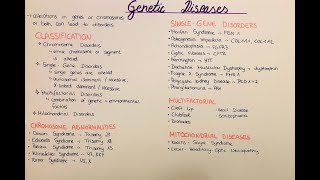 Genetic Diseases
Alterations in genes or chromosomes or both, can lead to disorders
CLASSIFICATION
Chromosome Disorders
Single-Gene Disorders
single genes are altered
Multifactorial Disorders
combination of genetic + environmental
Mitochondrial Disorders
CHROMOSOME ABNORMALITIES
Down Syndrome - Trisomy 21
Edwards Syndrome - Trisomy 18
Patau Syndrome - Trisomy 13
Klinefelter Syndrome - 47, XXY
Turner Syndrome - 45, X
SINGLE-GENE DISORDERS
Marfan Syndrome - FBN 1
Osteogenesis Imperfecta - COL1A1, COL1A2
Achondroplasia - FGFR3
Cystic Fibrosis - CFTR
Huntington's - HTT
Duchenne Muscular Dystrophy
Fragile X Syndrome - FMR 1
Polycystic Kidney Disease - PKD 1 + 2
Phenylketonuria - PAH
MULTIFACTORIAL
Cleft Lip
Heart Disease
Clubfoot
MITOCHONDRIAL DISEASES
Kearns - Sayre Syndrome
Leber Hereditary Optic Neuropathy